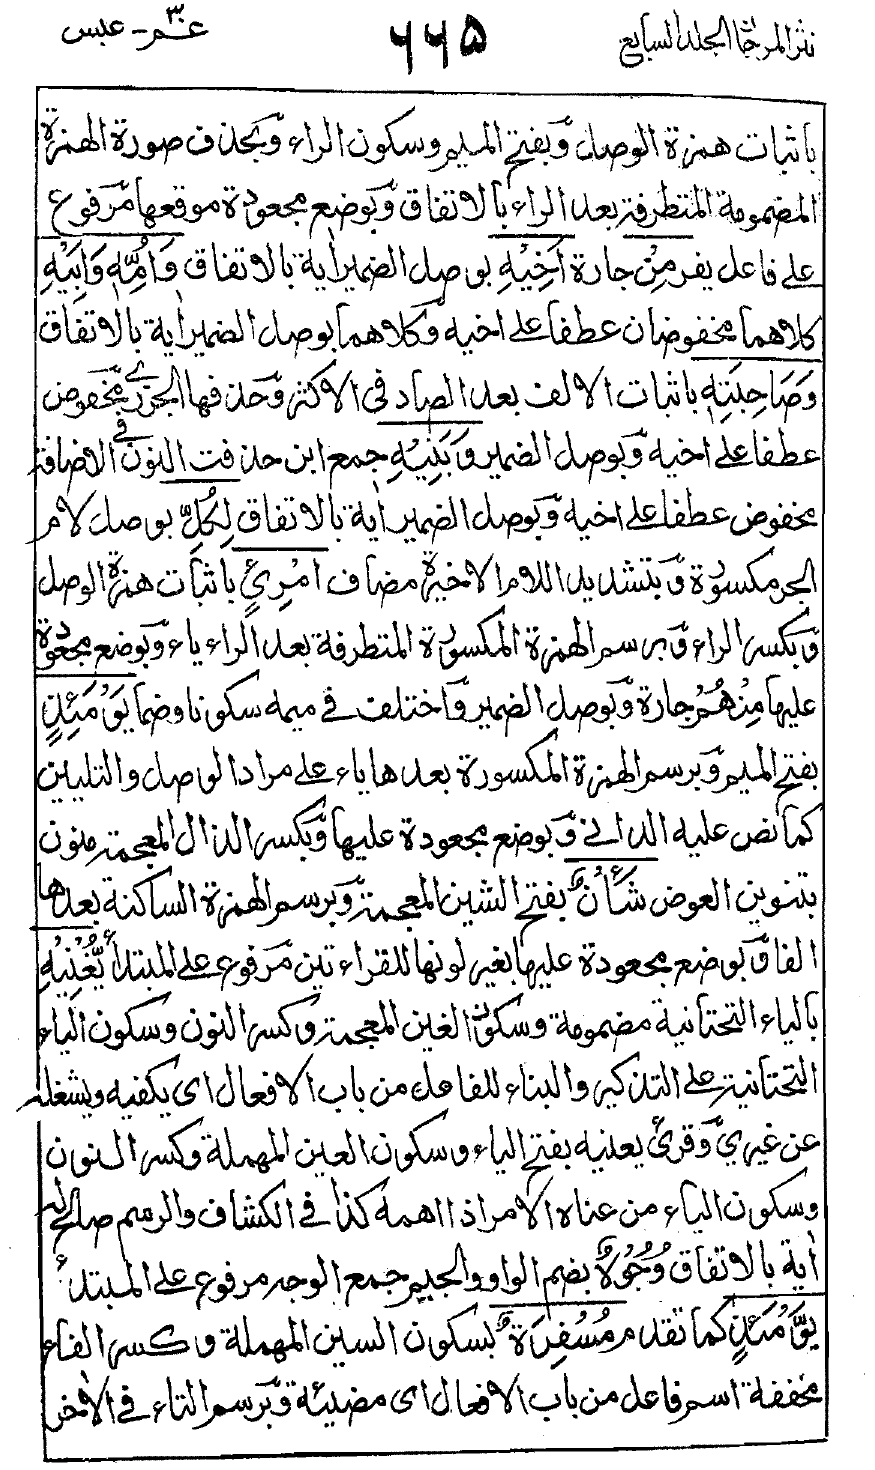 نثر المرجان الجلد السابع ٦٦٥ عـم٣ - عبس
باثبات همزة الوصل وَبفتح الميم وسكون الراء وَبحذف صورة الهمزة
المضمومة المتطرفة بعد الراء بالاتفاق وَبوضع مجعودة موقعها مرفوع
على فاعل يفر مِنْ جارة اَخِيْهِ بوصل الضمير اٰية بالاتفاق وَاُمِّهٖ وَاَبِيْهِ
كلاهما مخفوضان عطفا على اخيه وَكلاهما بوصل الضمير اٰية بالاتفاق
وَصَاحِبَتِهٖ باثبات الالف بعد الصاد في الاكثر وَحذفها الجزري مخفوض
عطفا على اخيه وَبوصل الضمير وَبَنِيْهِ جمع ابن حذفت النون في الاضافة
مخفوض عطفا على اخيه وَبوصل الضمير اٰية بالاتفاق لِكُلِّ بوصل لام
الجر مكسورة وَبتشديد اللام الاخيرة مضاف امْرِئٍ باثبات همزة الوصل
وَبكسر الراء وَبرسم الهمزة المكسورة المتطرفة بعد الراء ياء وَبوضع مجعودة
عليها مِنْهُمْ جارة وَبوصل الضمير وَاختلف في ميمه سكونا وضما يَوْمَئِذٍ
بفتح الميم وَبرسم الهمزة المكسورة بعدها ياء على مراد الوصل والتليين
كما نص عليه الداني وَبوضع مجعودة عليها وَبكسر الذال المعجمة منون
بتنوين العوض شَأْنٌ بفتح الشين المعجمة وَبرسم الهمزة الساكنة بعدها
الفا وَبوضع مجعودة عليها بغير لونها للقراءتين مرفوع على المبتدأ يُّغْنِيْهِ
بالياء التحتانية مضمومة وسكون الغين المعجمة وكسر النون وسكون الياء
التحتانية على التذكير والبناء للفاعل من باب الافعال اى يكفيه ويشغله
عن غيرى وَقرئ يعنيه بفتح الياء وسكون العين المهملة وكسر النون
وسكون الياء من عناه الامر اذا اهمه كذا في الكشاف والرسم صالح له
اٰية بالاتفاق وُجُوْهٌ بضم الواو والجيم جمع الوجه مرفوع على المبتدأ
يَّوْمَئِذٍ كما تقدم مُسْفِرَةٌ بسكون السين المهملة وكسر الفاء
مخففة اسم فاعل من باب الافعال اى مضيئة وَبرسم التاء في الاٰخر